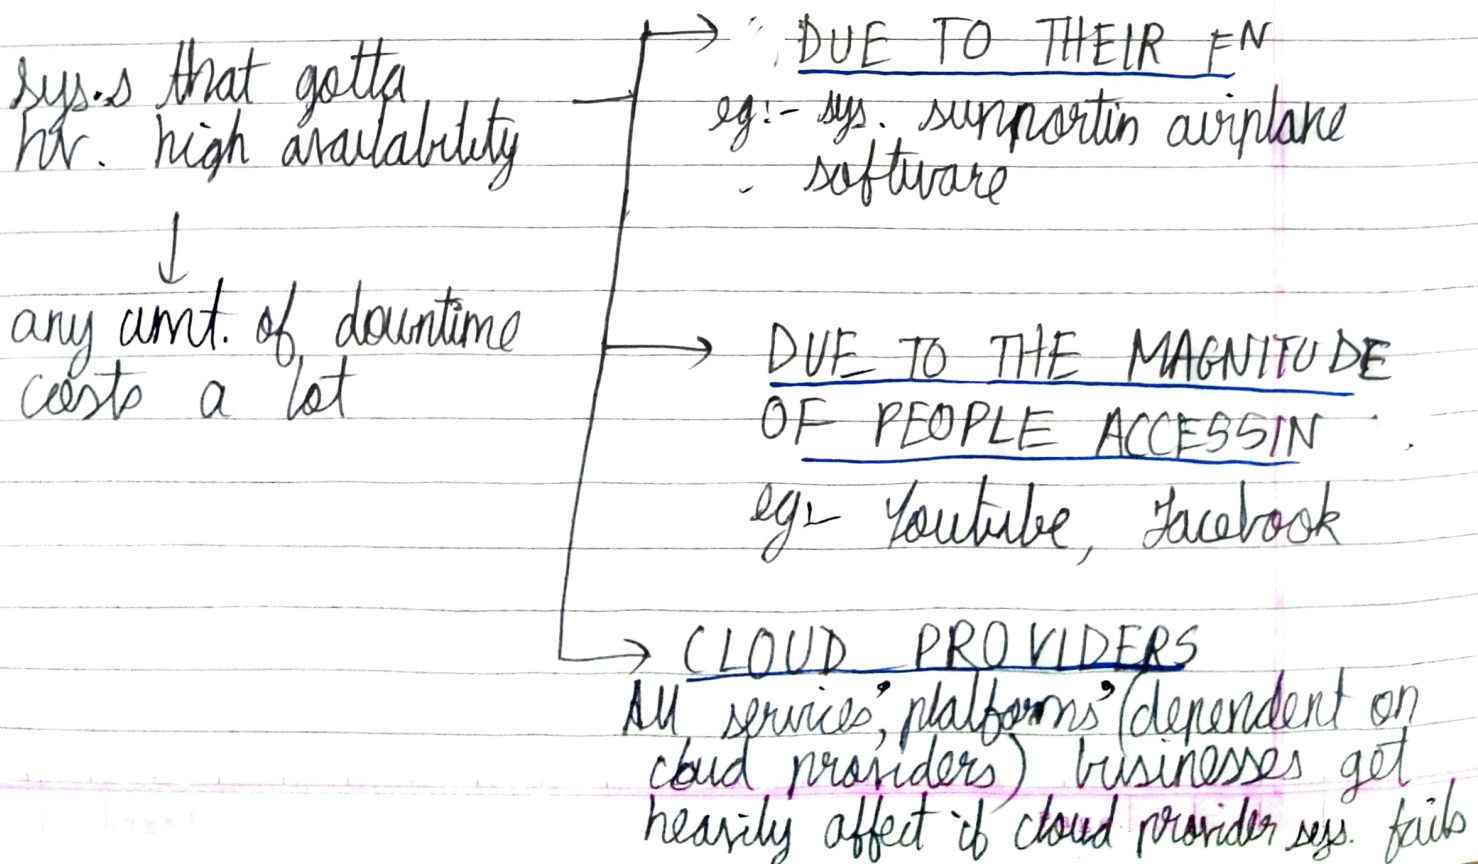 sys.s that gotta
hv. high availability
any amt. of downtime
costs a lot
DUE TO THEIR FN
eg:- sys. supportin airplane
software
DUE TO THE MAGNITUDE
OF PEOPLE ACCESSIN
eg:- Youtube, Facebook
CLOUD PROVIDERS
All services', platforms' (dependent on
cloud providers) businesses get
heavily affect if cloud provider sys. fails